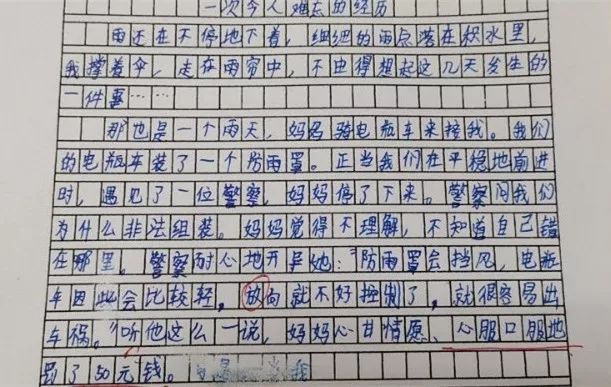 一次令人难忘的经历
雨还在不停地下着，细细的雨点落在积水里，
我撑着伞，走在雨帘中，不由得想起这几天发生的
一件事……
那也是一个雨天，妈妈骑电瓶车来接我。我们
的电瓶车装了一个防雨罩。正当我们在平稳地前进
时，遇见了一位警察，妈妈停了下来。警察问我们
为什么非法组装。妈妈觉得不理解，不知道自己错
在哪里。警察耐心地开导她："防雨罩会挡风，电瓶
车因此会比较轻，放向就不好控制了，就很容易出
车祸。"听他这么一说，妈妈心甘情愿、心服口服地
罚了50元钱。